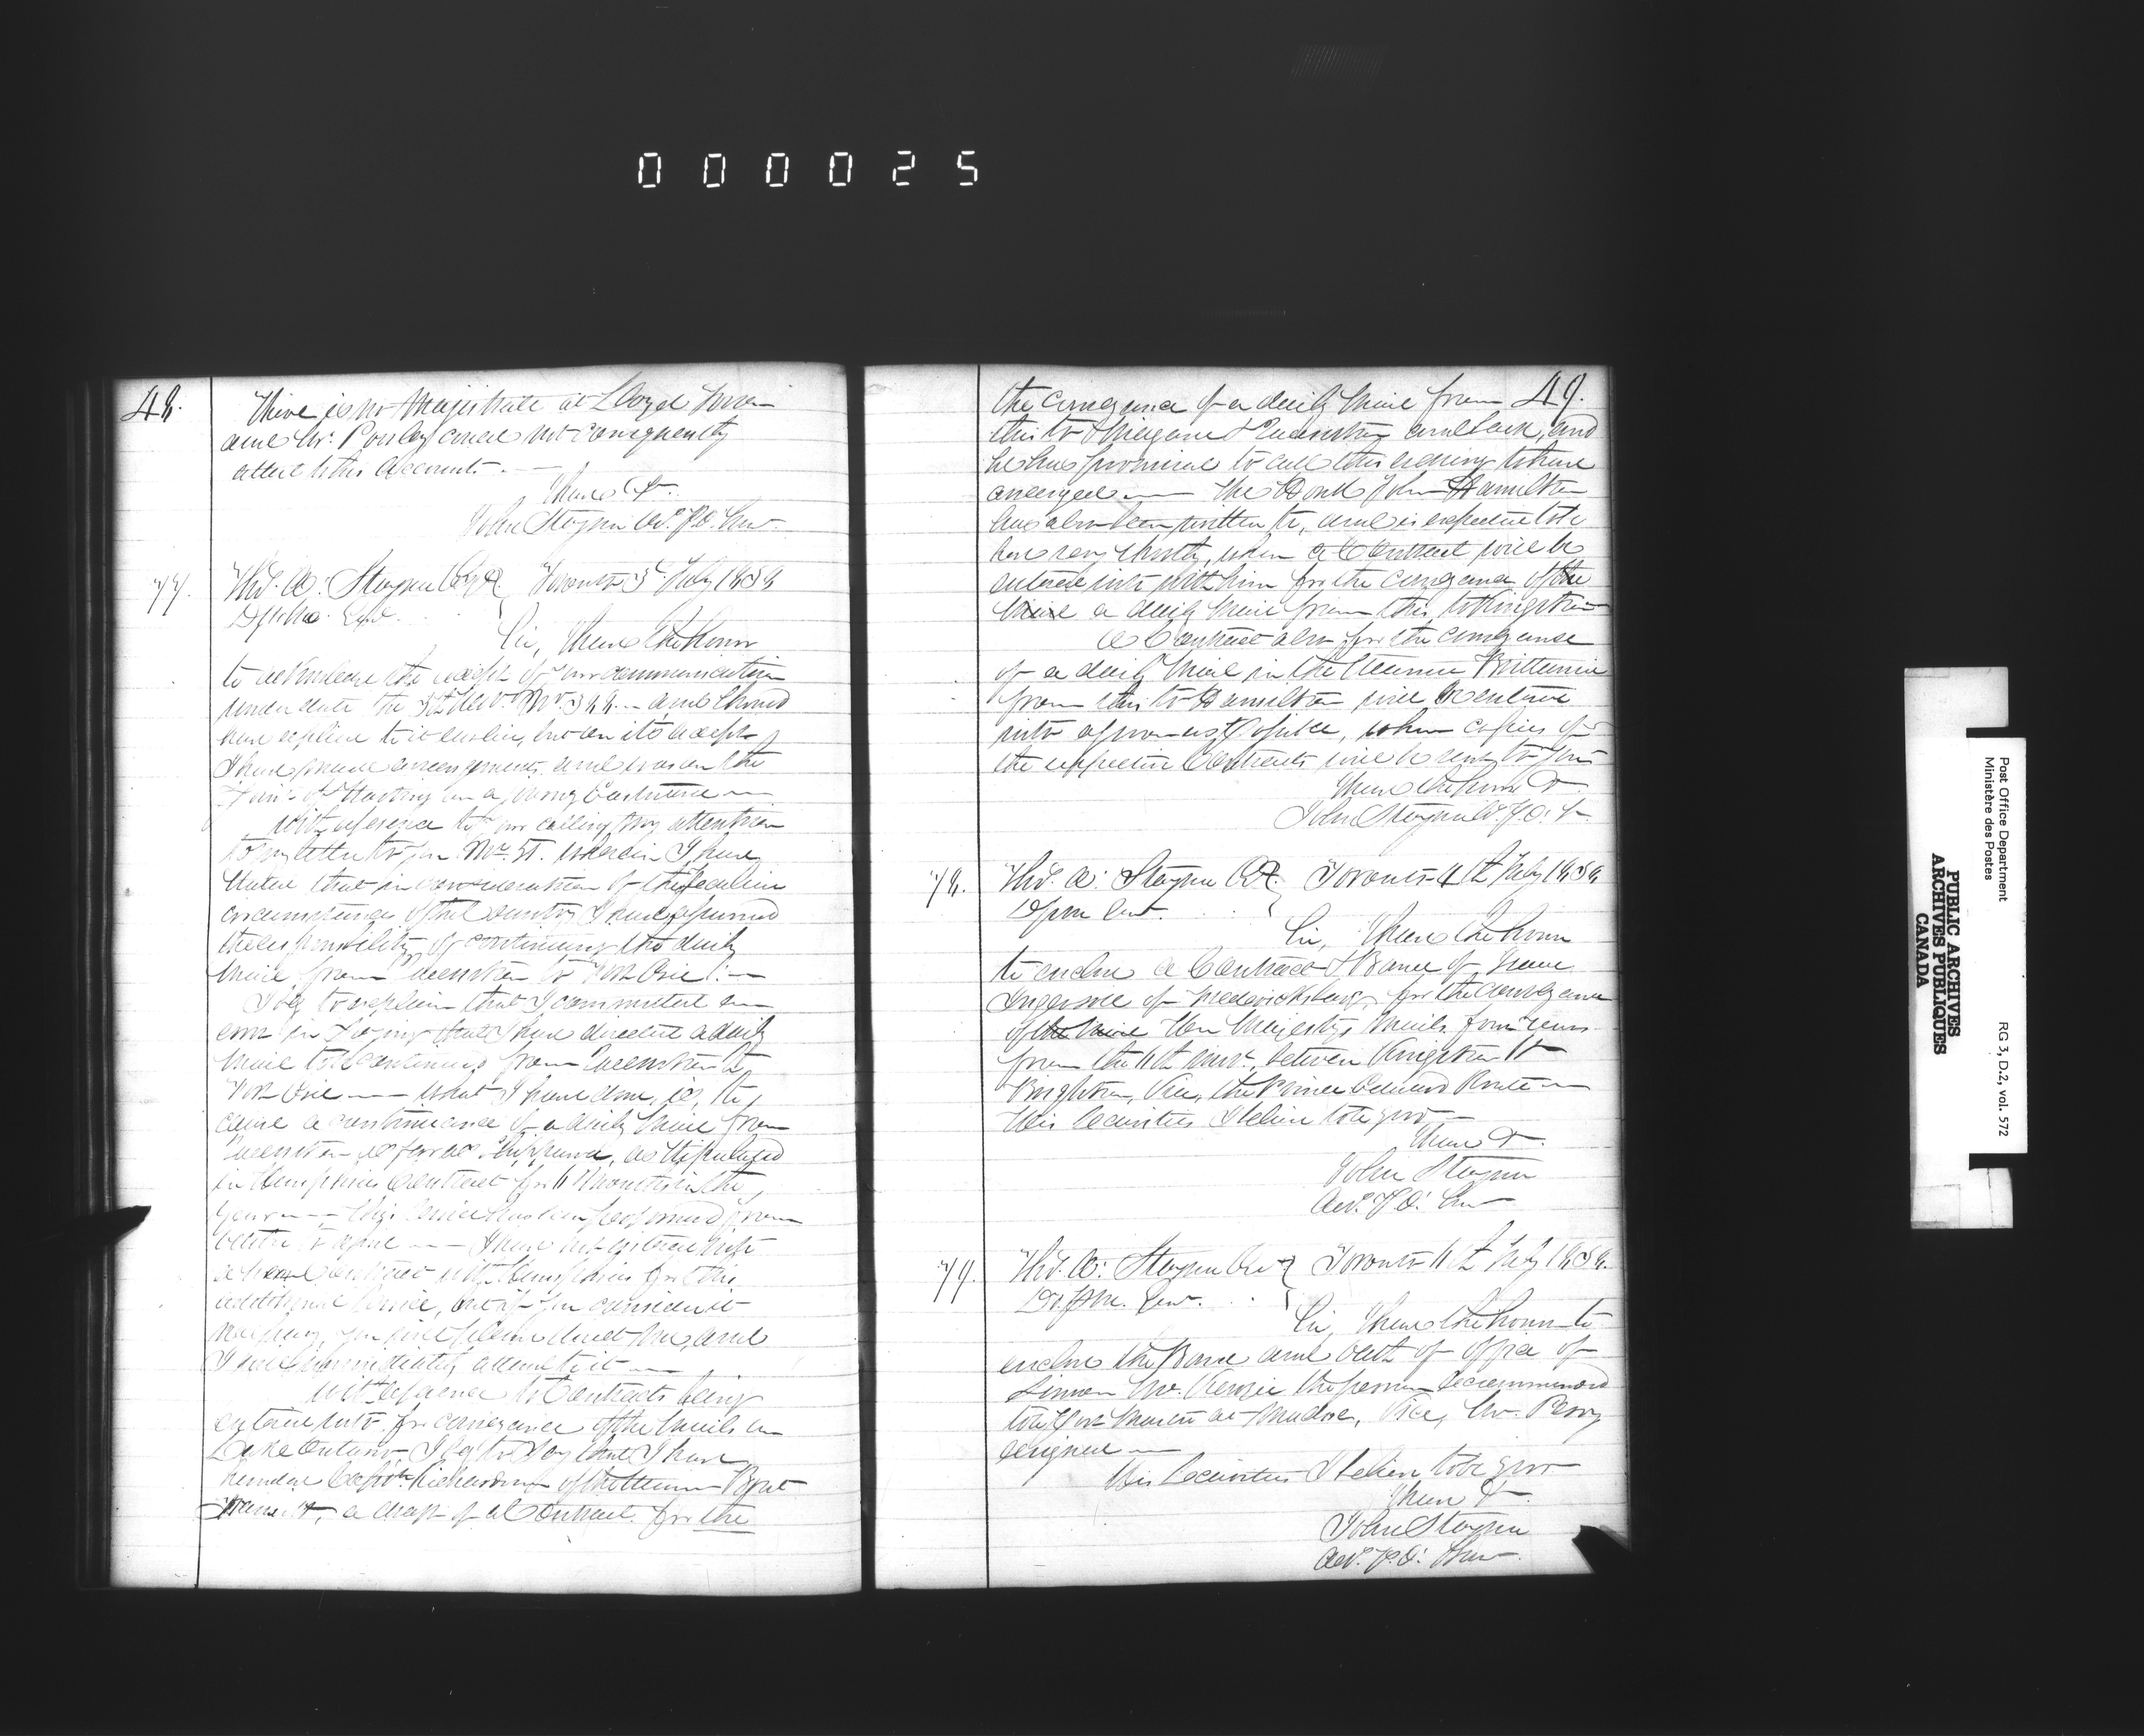 0 0 0 0 2 5
48.
There is no Magistrate at Lloyd Town
and Mr. Pousley could not consequently
attest to his Account. —
I have &c.
John Stayner P.O. Sur.
77.
Thos. A. Stayner Esqr Toronto 5th July 1838
D.P.M.G. Qbc.
Sir, I have the honor
to acknowledge the receipt of your communication
under date the No. 388 — and should
have replied to it earlier, but on its receipt
I have made arrangements and was on the
of starting on a journey
With reference to your calling my attention
to my letter to you No. 51. wherein I have
stated that in consideration of the peculiar
circumstances of the Country I have assumed
the responsibility of continuing the daily
Mail from Queenston to Fort Erie: —
I beg to explain that I committed an
error in saying that I have directed a daily
Mail to be continued from Queenston to
Fort Erie — what I have done, is, to
cause a continuance of a daily Mail from
Queenston as far as Chippawa, as stipulated
in Contract for 6 Months in the
year — this service has been performed from
to April — I have not entered into
a Contract with for this
additional service, but if you consider it
necessary, you will please direct me, and
I will immediately attend to it —
With reference to Contracts being
entered into for conveyance of the Mails on
Lake Ontario, I beg to say that I have
handed Captn. Richardson of the Steam Boat
a draft of a Contract for the
49.
the conveyance of a daily Mail from
this to Niagara & Queenston and back, and
he has promised to call this evening to have
arranged — The Honble John Hamilton
has also been written to, and is expected to be
here very shortly, when a Contract will be
entered into with him for the conveyance of the
Mail a daily Mail from this to Kingston
A Contract also for the conveyance
of a daily Mail in the Steamer Brittannia
from this to Hamilton will be entered
into as soon as possible, when copies of
the respective Contracts will be sent to you
I have the honor &c.
John Stayner P.O. S.
78.
Thos. A. Stayner Esqr. Toronto 11th July 1838
D.P.M. Genl.
Sir, I have the honor
to enclose a Contract & Bond of
Ingersoll of Fredericksburg, for the Conveyance
of the Mail Her Majesty's Mails
from the 11th inst., between Kingston &
Brighton, Via, the Prince Edward Route —
His Securities I believe to be good —
I have &c.
John Stayner
P.O. Sur
79.
Thos. A. Stayner Esqr Toronto 11th July 1838.
D.P.M. Genl.
Sir, I have the honor to
enclose the Bond and Oath of Office of
McKenzie the person recommended
to be Post Master at Madoc, Vice, Mr. Perry
resigned —
His Securities I believe to be good
I have &c.
John Stayner
P.O. Sur.
Post Office Department
Ministère des Postes
RG 3, D.2, vol. 572
PUBLIC ARCHIVES
ARCHIVES PUBLIQUES
CANADA